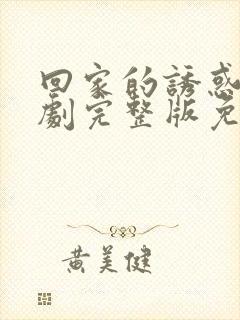 回家的誘惑
劇完整版免
黄美健